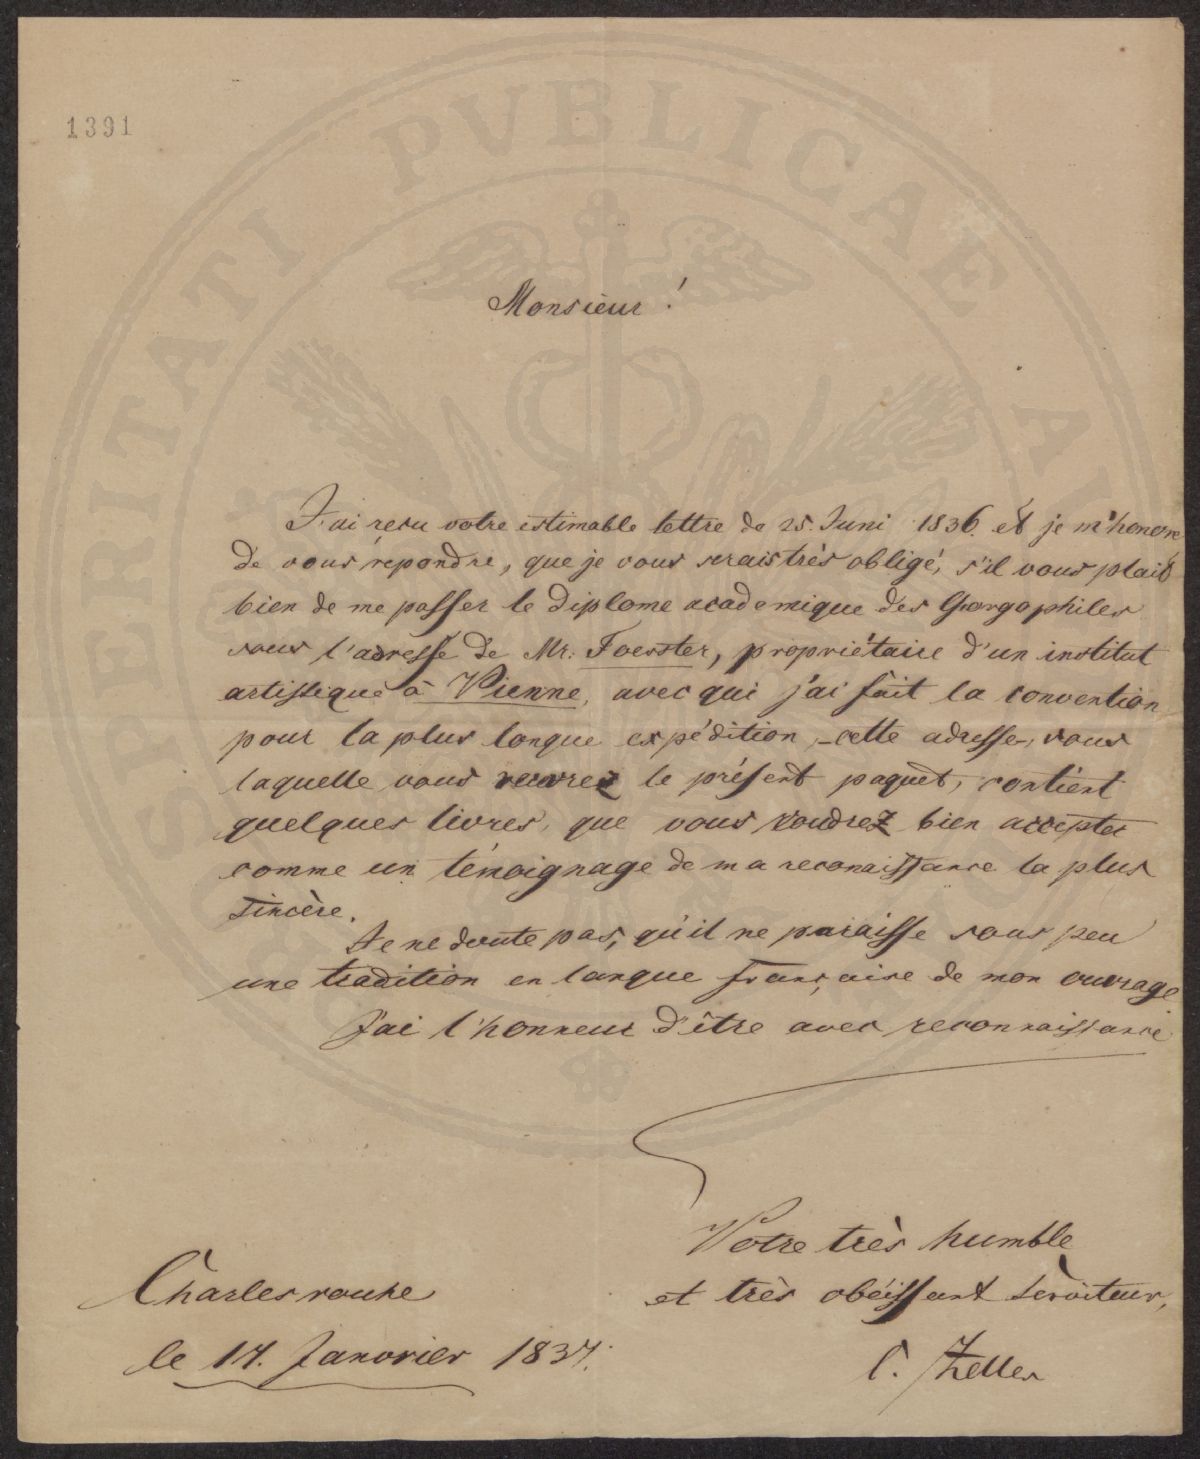 1391
PROSPERITATI PVBLICAE AV
Monsieur!
J'ai reçu votre estimable lettre de 25. Juni 1836. et je m'honore
de vous répondre, que je vous serais très obligé, s'il vous plait
bien de me passer le diplome academique des Georgophiles
sous l'adresse de Mr. Foerster, propriétaire d'un institut
artistique à Vienne, avec qui j'ai fait la convention
pour la plus longue expédition, - cette adresse -, sous
laquelle vous le présent paquet, contient
quelques livres, que vous voudrez bien accepter
comme un témoignage de ma reconaissance la plus
sincère.
Je ne doute pas, qu'il ne paraisse sous peu
une tradition en langue française de mon ouvrage
J'ai l'honneur d'être avec reconnaissance
Votre très humble
et très obéissant serviteur,
C. Zeller
Charlesrouhe
le 17. Janvrier 1837.